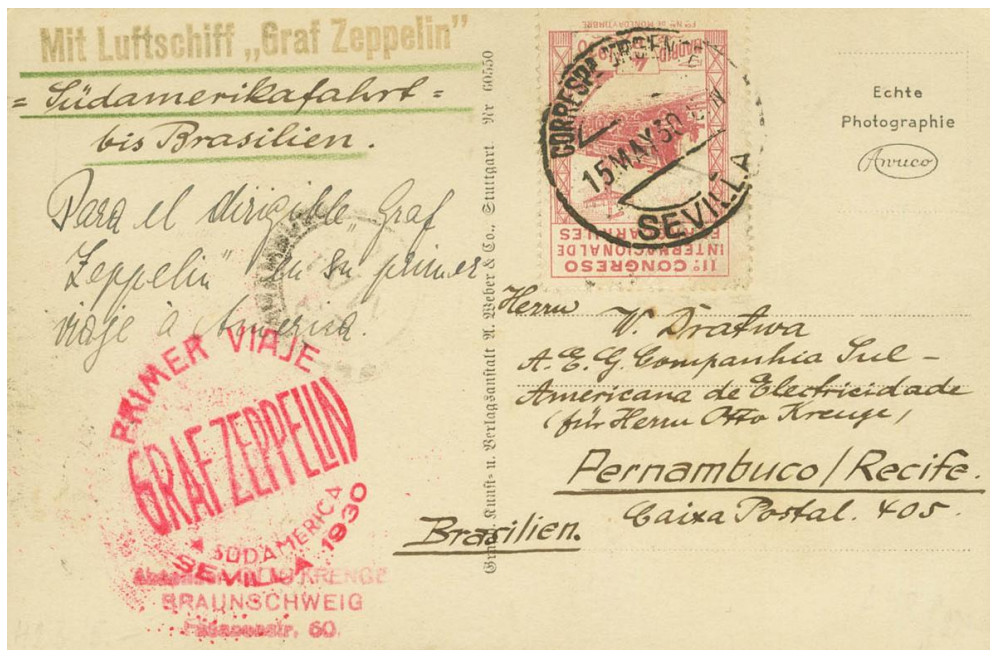 Mit Luftschiff „Graf Zeppelin“
= Südamerikafahrt =
bis Brasilien.
Para el dirigible „Graf
Zeppelin“ en su primer
viaje á America.
PRIMER VIAJE
GRAF ZEPPELIN
A SUDAMERICA
SEVILLA 1930
OTTO KRENGE
BRAUNSCHWEIG
60.
Kunst- u. Verlagsanstalt A. Weber & Co., Stuttgart Nr 60550
CORRESP
15 MAY 30
SEVILLA
11º CONGRESO
INTERNACIONAL DE
FERROCARRILES
Echte
Photographie
Awuco
Herrn
W. Dratwa
A. E. G. Companhia Sul-
Americana de Electricidade
(für Herrn Otto Krenge)
Pernambuco/Recife.
Caixa Postal. 405.
Brasilien.